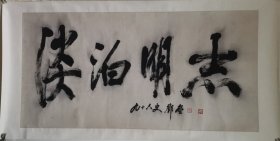 淡泊明志
九十八叟